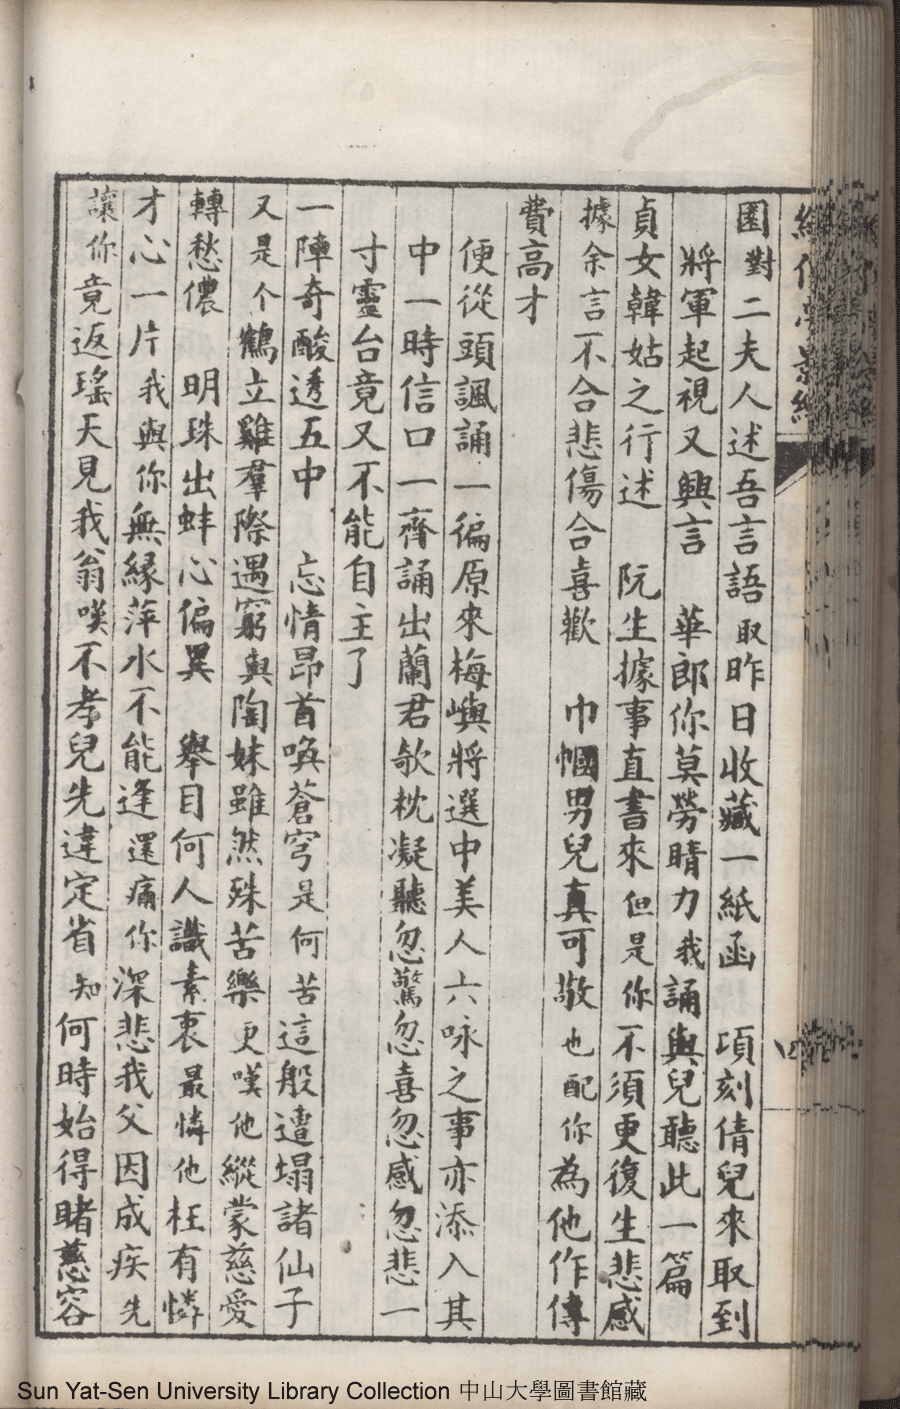 園對二夫人述吾言語取昨日收藏一紙函　項刻倩兒來取到
將軍起視又興言　華郎你莫勞睛力我誦與兒聽此一篇
貞女韓姑之行述　阮生據事直書來但是你不須更復生悲感
據余言不合悲傷合喜歡　巾幗男兒真可敬也配你為他作傳
費高才
便從頭諷誦一徧原來梅嶼將選中美人六咏之事亦添入其
中一時信口一齊誦出蘭君欹枕凝聽忽驚忽喜忽感忽悲一
寸靈台竟又不能自主了
一陣奇酸透五中　忘情昂首喚蒼穹是何苦這般遭塌諸仙子
又是个鶴立雞羣際遇窮與陶妹雖然殊苦樂更嘆他縱蒙慈愛
轉愁儂　明珠出蚌心偏異　舉目何人識素衷最憐他枉有憐
才心一片我與你無緣萍水不能逢還痛你深悲我父因成疾先
讓你竟返瑤天見我翁嘆不孝兒先違定省知何時始得睹慈容
Sun Yat-Sen University Library Collection 中山大學圖書館藏